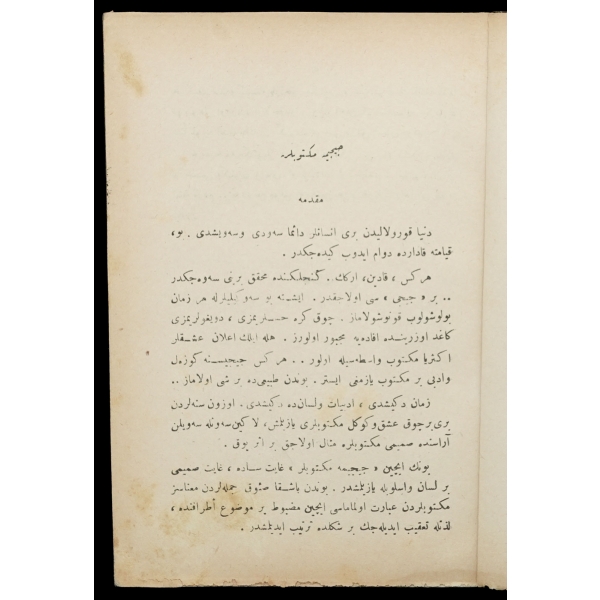 جيجيمه مكتوبلر
مقدمه
دنيا قورولاليدن برى انسانلر دائما سه‌ودى وسه‌ويشدى . بو،
قيامته قادارده دوام ايدوب كيده‌جكدر .
هركس ، قادين ، اركك . كنجلكنده محقق برينى سه‌وه‌جكدر
.. بر « جيجى » سى اولاجقدر . ايشته بو سه‌وكيليلرله هر زمان
بولوشولوب قونوشولاماز . چوق كره حسلريمزى ، دويغولريمزى
كاغد اوزرينده افاده‌يه مجبور اولورز . هله ايلك اعلان عشقلر
اكثريا مكتوب واسطه‌سيله اولور . . هركس جيجيسنه كوزل
وادبى بر مكتوب يازمق ايستر . بوندن طبيعى‌ده بر شى اولاماز ..
زمان دكيشدى ، ادبيات ولسان‌ده دكيشدى . اوزون سنه‌لردن
برى برچوق عشق وكوكل مكتوبلرى يازيلمش ، لاكين سه‌ونله سه‌ويلن
آراسنده صميمى مكتوبلره مثال اولاجق بر اثر يوق .
بونك ايچين « جيجيمه مكتوبلر » غايت ساده ، غايت صميمى
بر لسان واسلوبله يازيلمشدر . بوندن باشقا صئوق جمله‌لردن معناسز
مكتوبلردن عبارت اولماماسى ايچين مضبوط بر موضوع أطرافنده ،
لذتله تعقيب ايديله‌جك بر شكلده ترتيب ايديلمشدر .